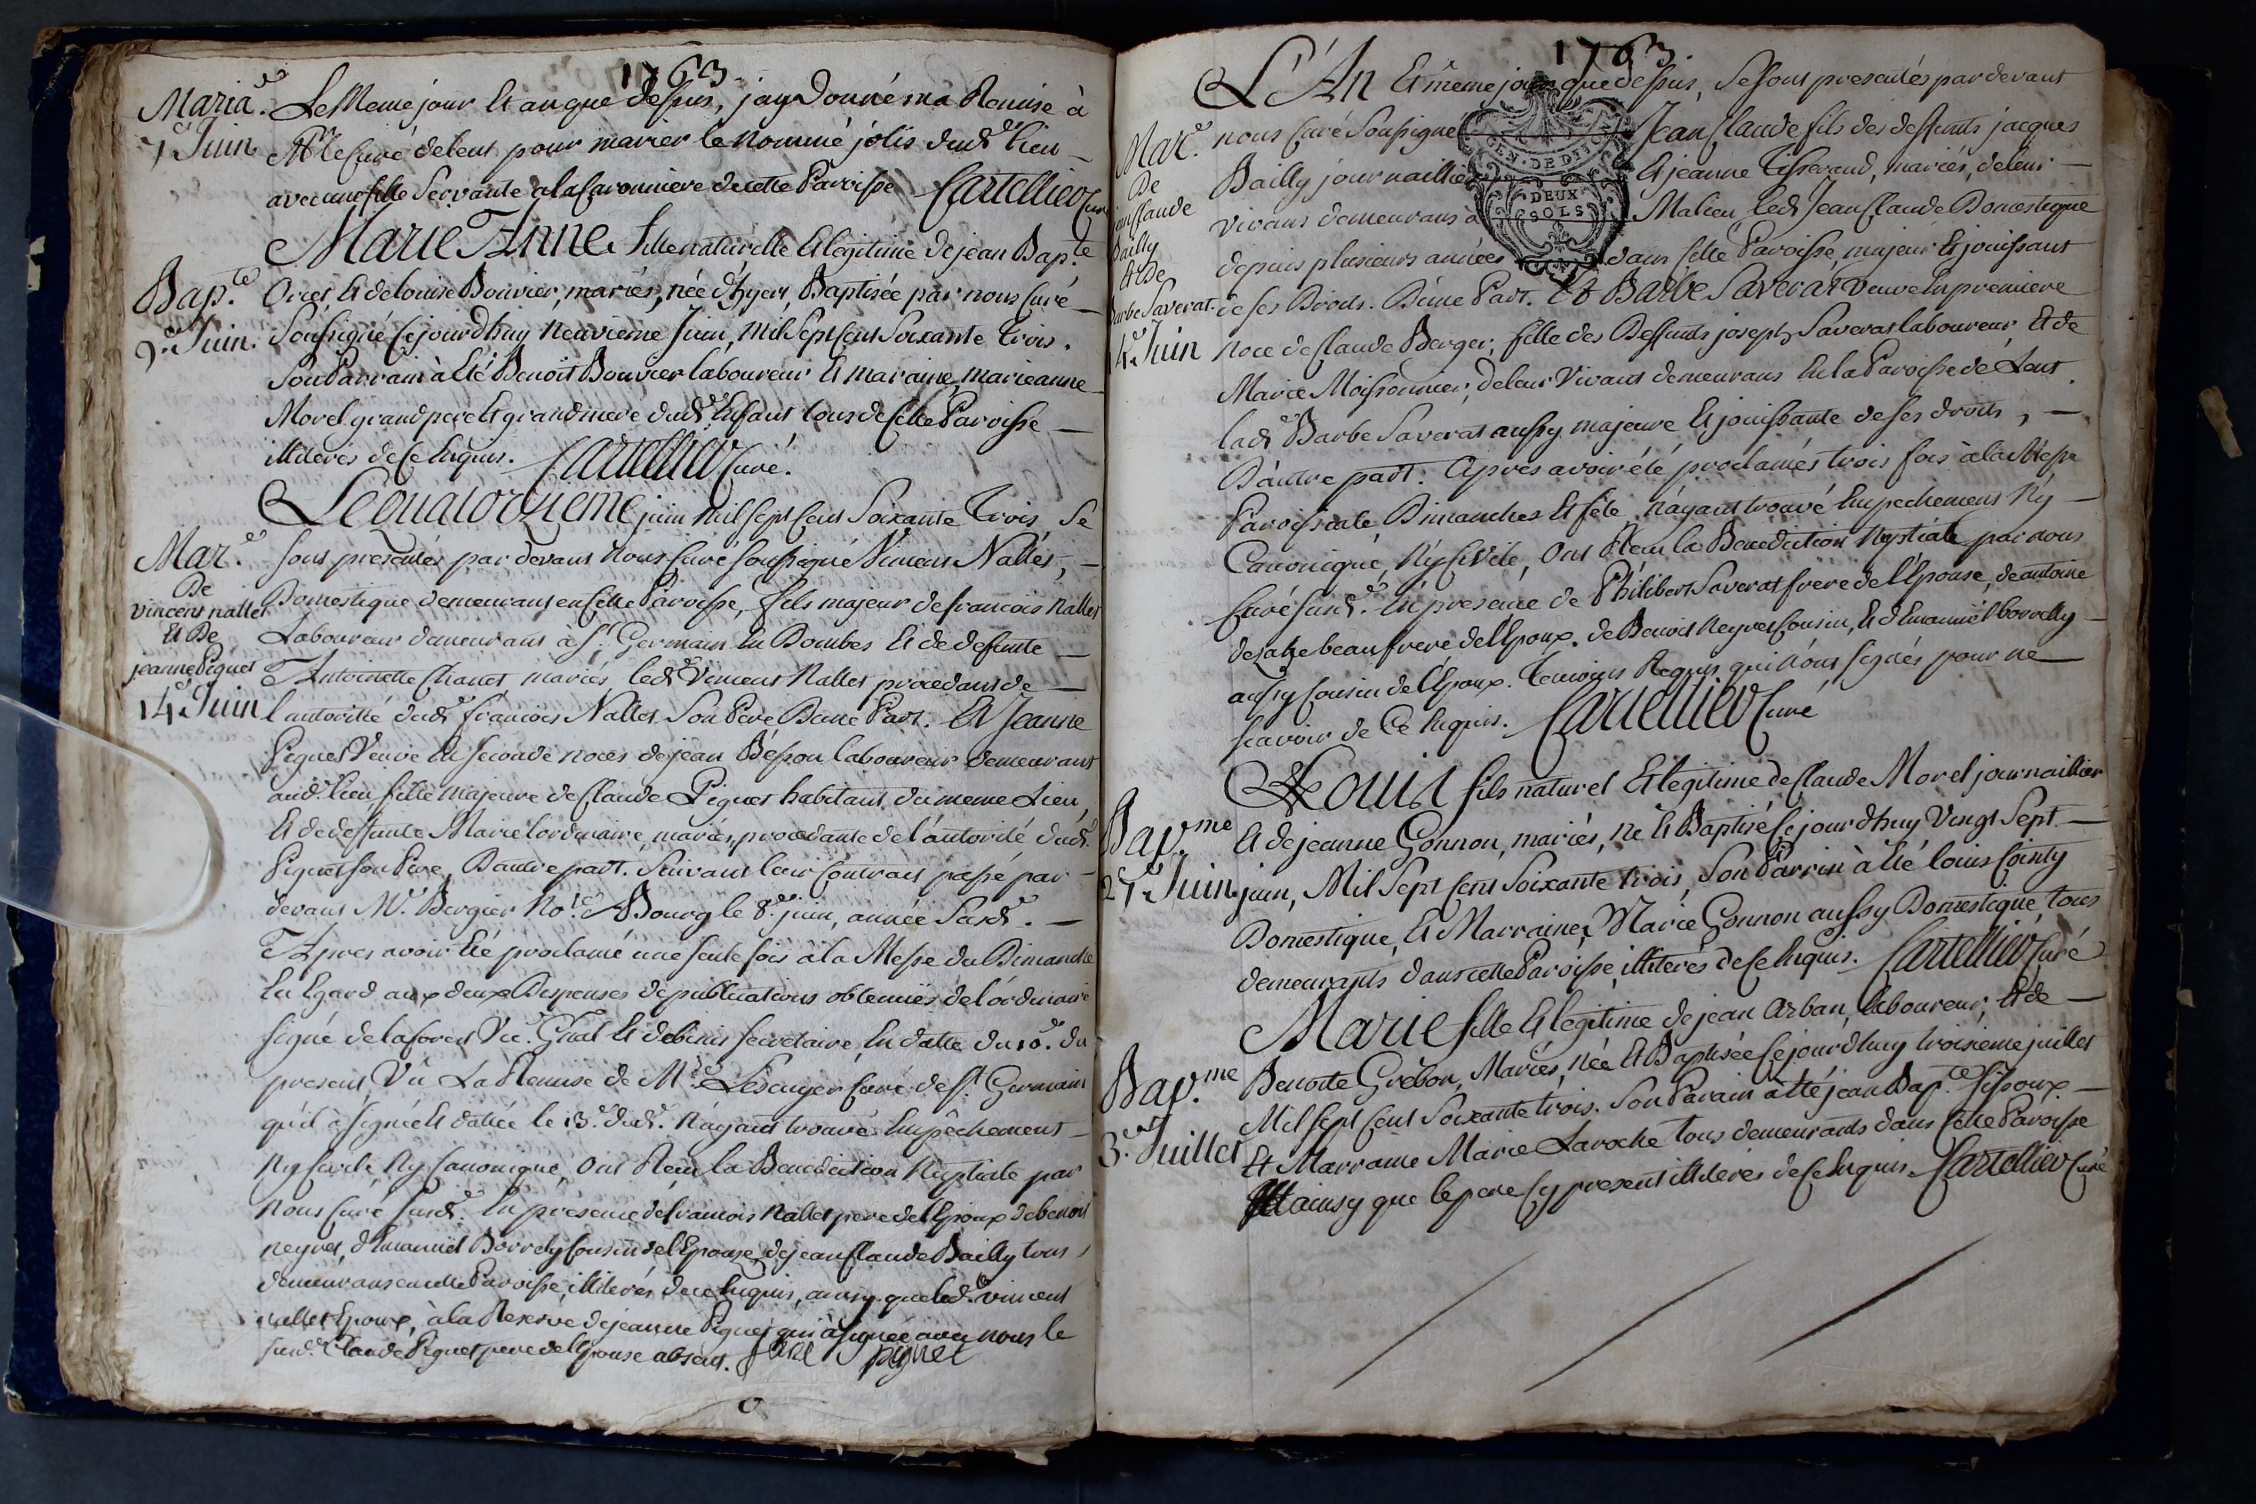 1763
Maria.e
7.e Juin
Le Meme jour Et an que dessus, jay Donné ma Remise à
Mr le Curé de lent pour marier le nommé jolis dud.t lieu
avec une fille Servante a la Caronniere de cette Paroisse Cartellier Curé
Bap.te
9.e Juin.
Marie Anne fille naturelle Et légitime de jean Bap.te
Et de louise Bouvier, mariés, née d'hyer, Baptisée par nous Curé
Soussigné Ce jourdhuy neuvieme Juin, mil Sept Cent Soixante Trois.
Son Parrain à Eté Benoit Bouvier laboureur Et maraine marieanne
Morel grand pere Et grand mere dud.t Enfant tous de Cette Paroisse
illiterés de Ce Enquis. Cartellier Curé.
Mar.e
De
vincent nallet
Et De
jeanne Piquet
14.e Juin
Le quatorzieme juin mil Sept Cent Soixante Trois, Se
Sont presentés par devant Nous Curé Soussigné Vincent Nallet,
Domestique demeurant en Cette Paroisse, fils majeur de francois Nallet
Laboureur demeurant à St. Germain En Dombes Et de defunte
Antoinette Chanet mariés led.t Vincent Nallet procedant de
l'autorité dud.t francois Nallet Son Pere D'une Part. Et Jeanne
Piquet Veuve En Seconde noces de jean Besson laboureur demeurant
aud. lieu fille majeure de Claude Piquet habitant du meme Lieu,
Et de deffunte Marie lordinaire, mariés, procedante de l'autorité dud.
Piquet Son Pere, D'autre part. Suivant leur Contrat passé par
devant Mr. Bergier No.re A Bourg le 8.e juin, année Susd.e
Apres avoir Eté proclamé une Seule fois à la Messe du Dimanche
En Egard aux deux Dispenses de publications obtenuës de l'ordinaire
Signé de laforest Vic. Gnal Et debinis Secretaire En datte du 10.e du
present Vu La Remise de Mre Lescuyer Curé de St Germain
qu'il à Signée Et dattée le 13.e dud.t N'ayant trouvé Empêchement
Ny Civil, Ny Canonique, Ont Reçu la Benediction Nuptiale par
Nous Curé Susd.t En présence de francois Nallet pere de l'Epoux de benoit
neyret, d'Emanuel Borrely Cousin de l'Epouse, de jean Claude Bailly tous
demeurans en cette Paroisse, illiterés de ce Enquis, ainsy que led.t vincent
nallet Epoux, à la Reserve de jeanne Piquet qui à Signée avec nous le
Susd. Claude Piquet pere de l'Epouse absent. piqnet
1763.
Mar.e
De
jean Claude
Bailly
Et De
Barbe Saverat.
14.e Juin
L'An Et même jour que dessus, Se Sont presentés par devant
nous Curé Soussigné Jean Claude fils des deffunts jacques
Bailly journaillier Et jeanne Tisserand, mariés, de leur
Vivans demeurans à Malieu led.t Jean Claude Domestique
depuis plusieurs années dans Cette Paroisse, majeur Et jouissant
de Ses Droits. D'une Part. Et Barbe Saverat Veuve En premiere
noce de Claude Berger, fille des Deffunts joseph Saverat laboureur Et de
Marie Moissonnier, de leur Vivant demeurans En la Paroisse de Lent
lad.e Barbe Saverat aussy majeure Et jouissante de Ses droits,
D'autre part. Après avoir été proclamés trois fois à la Messe
Paroissiale, Dimanches Et fête, n'ayant trouvé Empechemens Ny
Canonique, Ny Civile, Ont Reçu la Benediction Nuptiale par nous
Curé Susd.t En presence de Philibert Saverat frere de l'Epouse, de antoine
beau frere de l'Epoux. de Benoit Neyret Cousin, Et d'Emanuel borrelly
aussy Cousin de l'Epoux. Temoins Requis qui n'ont Signés pour ne
Scavoir de Ce Enquis. Cartellier Curé
GEN. DE DIJON
DEUX
SOLS
Bap.me
27.e Juin
Louis fils naturel Et legitime de Claude Morel journaillier
Et de jeanne Gonnon, mariés, né Et Baptisé Ce jourdhuy Vingt Sept
juin, Mil Sept Cent Soixante trois, Son Parrin à Eté louis Cointy
Domestique, Et Marraine Marie Gonnon aussy Domestique, tous
demeurants dans cette Paroisse, illiterés de Ce Enquis. Cartellier Curé
Bap.me
3.e Juillet
Marie fille Et légitime de jean Arban, laboureur, Et de
Benoite Grebon, Mariés, née Et Baptisée Ce jourdhuy troisieme juillet
Mil Sept Cent Soixante trois. Son Parain à Eté jean Bap.te
Et Marraine Marie Laroche tous demeurants dans Cette Paroisse
ainsy que le pere Cy present illiterés de Ce Enquis Cartellier Curé